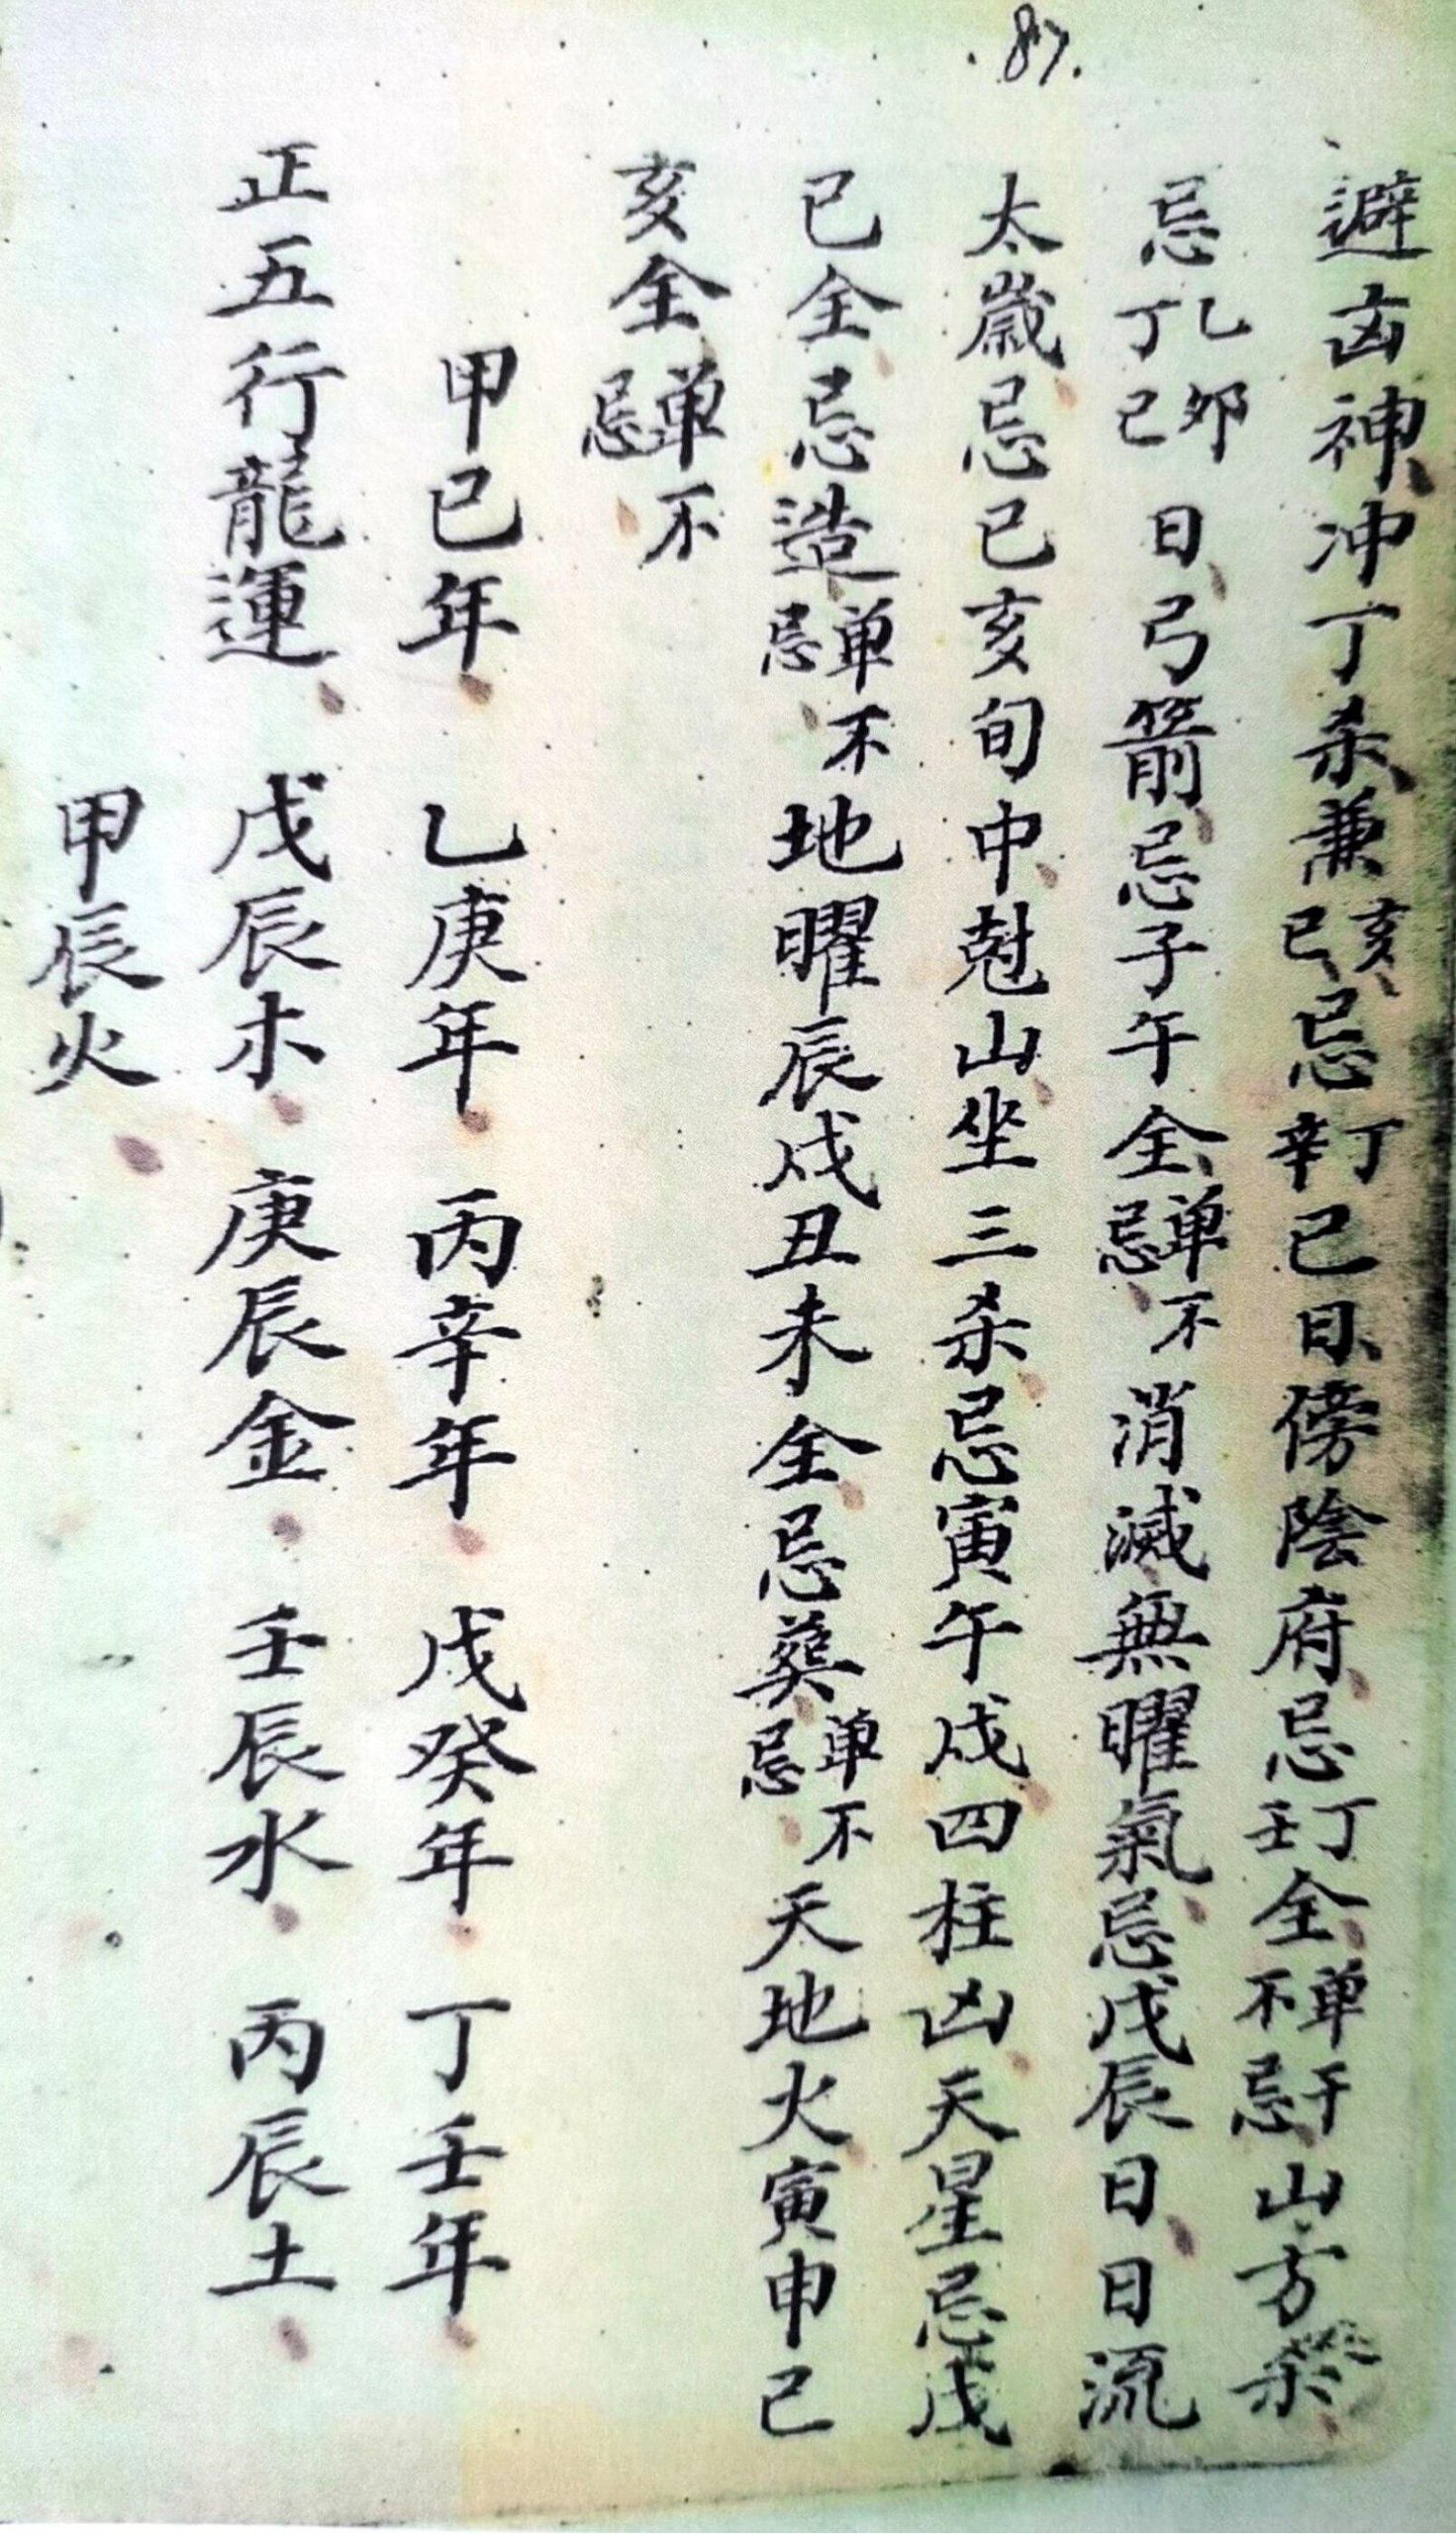 87.
避凶神冲丁杀兼亥巳忌丁辛巳日傍陰府忌丁壬全单干不忌山方杀
忌乙卯丁已日弓箭忌子午全单不忌消滅無曜氣忌戊辰日日流
太歲忌已亥旬中尅山坐三杀忌寅午戌四柱凶天星忌戊
已全忌造单不忌地曜辰戌丑未全忌葬单不忌天地火寅申已
亥全单不忌
甲已年 乙庚年 丙辛年 戊癸年 丁壬年
正五行龍運 戊辰木 庚辰金 壬辰水 丙辰土
甲辰火